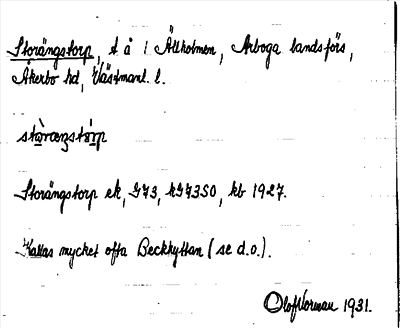 Storängstorp, t å i Ällholmen, Arboga landsförs,
Åkerbo hd, Västmanl. l.
stòræŋstórp
Storängstorp ek, GJ3, kGJ350, kb 1927.
Kallas mycket ofta Beckhyttan (se d.o.).
Olof Norman 1931.